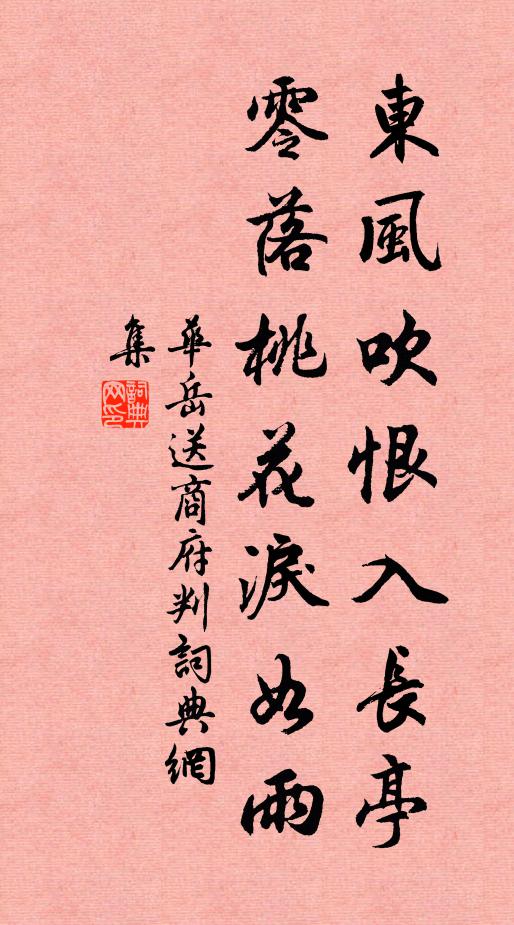 東風吹恨入長亭
零落桃花淚如雨
華岳送商府判詞典網
集
詞典
网印